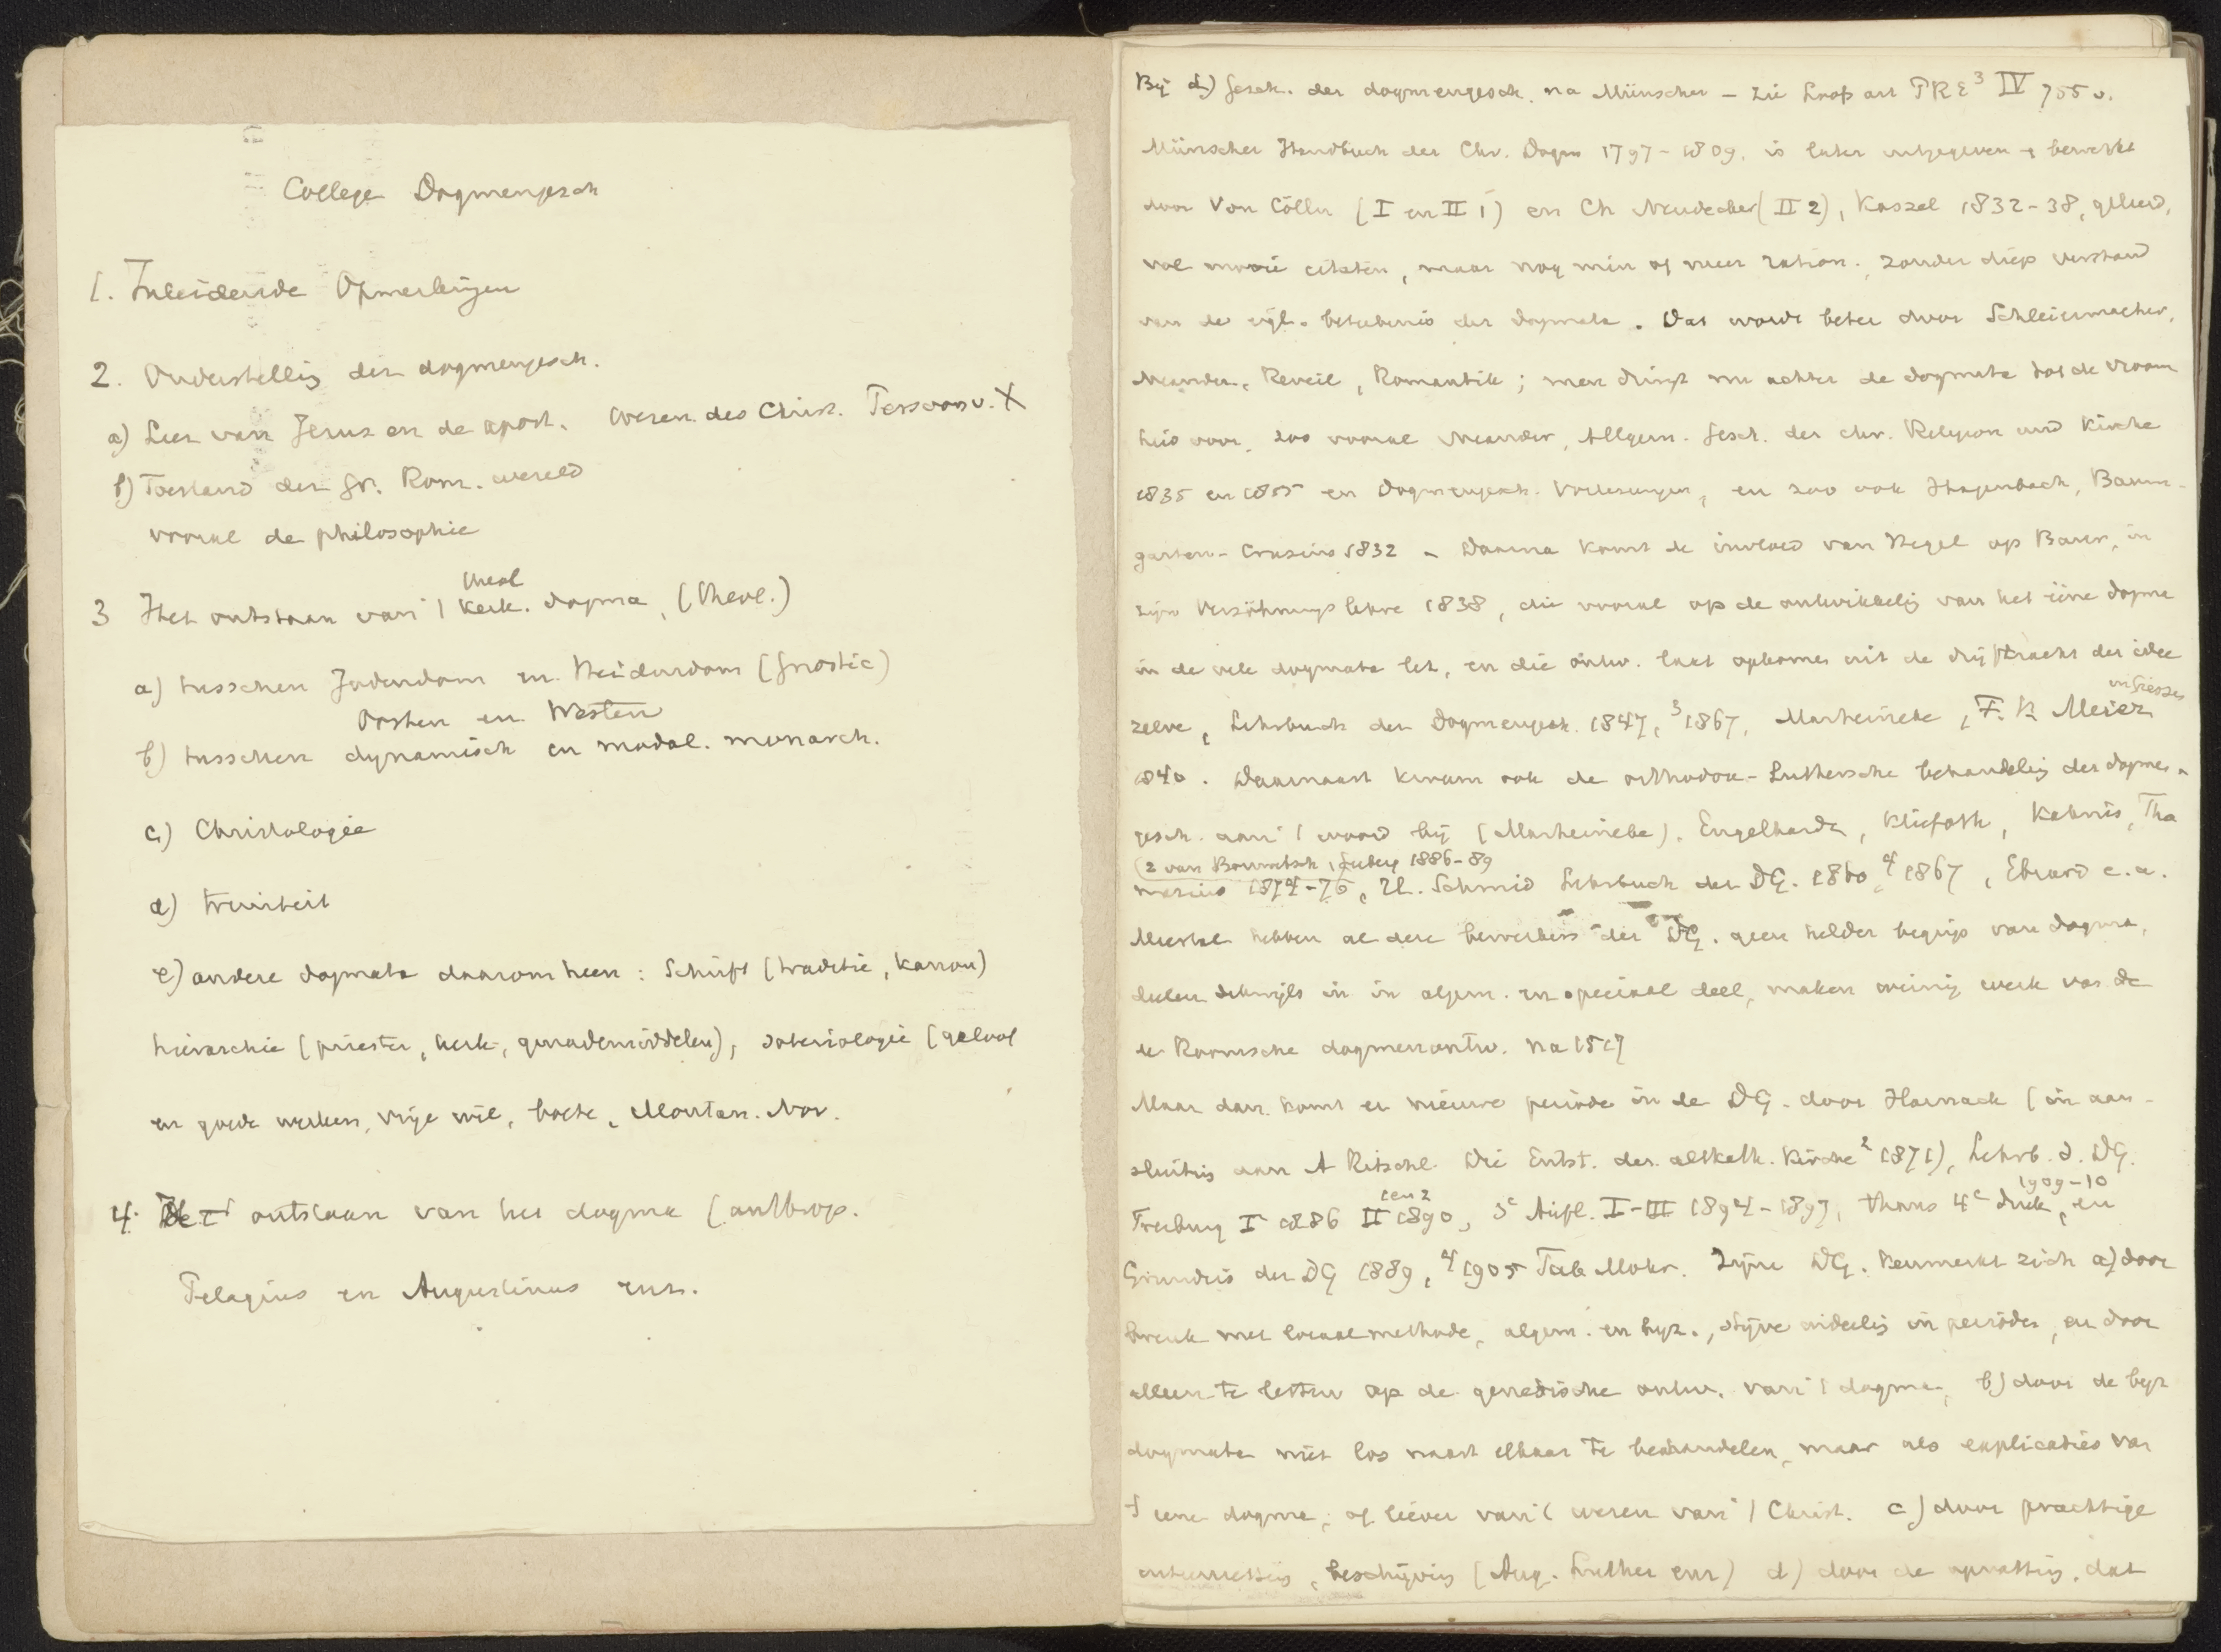 College Dogmengesch
1. Inleidende Opmerkingen
2. Onderstelling der dogmengesch.
a) Leer van Jezus en de apost. Wezen des Christ. X
b) Toestand der Gr. Rom. wereld
vooral de philosophie
theol
3 Het ontstaan van 't kerk. dogma, (theol.)
a) tusschen Jodendom en Heidendom (Gnostic)
Oosten en Westen
b) tusschen dynamisch en modal. monarch.
c) Christologie
d) triniteit
e) andere dogmata daarom heen: Schrift (traditie, kanon)
hierarchie (priester, kerk, genademiddelen), soteriologie (geloof
en goede werken, vrije wil, boete, Montan. Nov.
4. Het ontstaan van het dogma (anthrop.
Pelagius en Augustinus enz.
Bij d) Gesch. der dogmengesch. na Münscher – zie Loofs art PRE³ IV 755 v.
Münscher Handbuch der Chr. Dogm 1797-1809, is later uitgegeven en bewerkt
door Von Cölln (I en II 1) en Ch Neudecker (II 2), Kassel 1832-38, geleerd,
vol mooie citaten, maar nog min of meer ration. zonder diep verstand
van de eigl. beteekenis der dogmata. Dat wordt beter door Schleiermacher,
Neander, Reveil, Romantik; men dringt nu achter de dogmata tot de vroom
heid door, zoo vooral Neander, Allgem. Gesch. der chr. Religion und Kirche
1835 en 1855 en Dogmengesch. Vorlesungen, en zoo ook Hagenbach, Baum-
garten-Crusius 1832. Daarna komt de invloed van Hegel op Baur, in
zijn Versöhnungslehre 1838, die vooral op de ontwikkeling van het ééne dogma
in de vele dogmata let, en die ontw. laat opkomen uit de drijfkracht der idee
in Giessen
zelve, Lehrbuch der Dogmengesch. 1847, ³1867, Marheineke, F. K Meier
1840. Daarnaast kwam ook de orthodox-Luthersche behandeling der dogmen-
gesch. aan 't woord bij (Marheineke). Engelhardt, Kliefoth, Kahnis, Tho
(2 van Bonwetsch, Seeberg 1886-89
masius 1874-76, H. Schmid Lehrbuch der DG. 1860 ⁴1867, Ebrard e.a.
Meestal hebben al deze bewerkers der DG. geen helder begrip van dogma,
deelen dikwijls in in algem. en speciaal deel, maken weinig werk van de
de Roomsche dogmenontw. na 1517
Maar dan komt er nieuwe periode in de DG. door Harnack (in aan-
sluiting aan A Ritschl Die Entst. der altkath. Kirche² 1871), Lehrb. d. DG.
1 en 2
1909-10
Freiburg I 1886 II 1890, 3e Aufl. I-III 1894-1897, thans 4e druk, en
Grundris der DG 1889, ⁴1905 Tüb Mohr. Zijne DG. kenmerkt zich a) door
breuk met locaalmethode, algem. en byz., stijve indeeling in perioden, en door
alleen te letten op de genetische ontw. van 't dogma, b) door de byz
dogmata niet los naast elkaar te behandelen, maar als explicaties van
't eene dogma, of liever van 't wezen van 't Christ. c) door prachtige
beschrijving (Aug. Luther enz) d) door de opvatting, dat